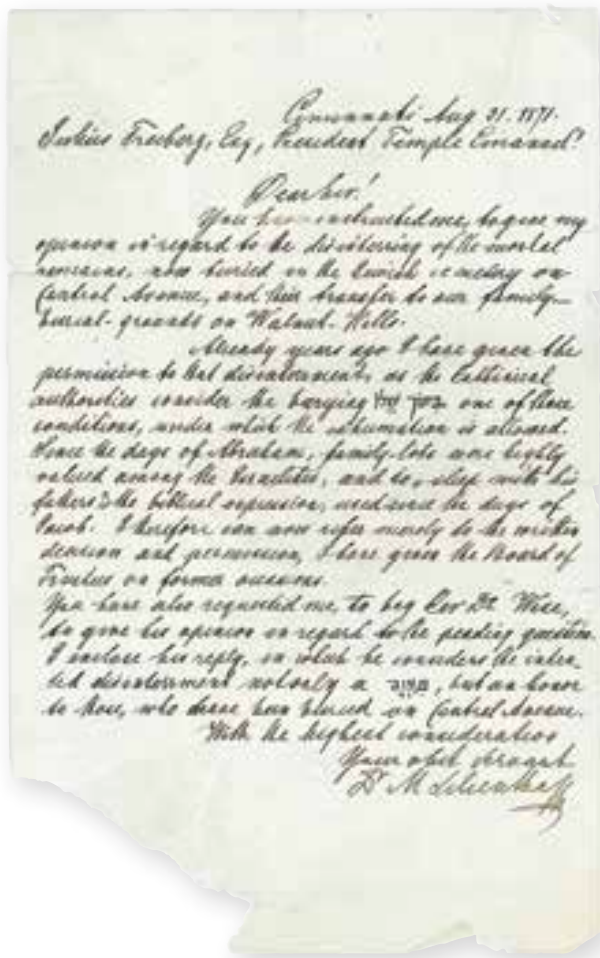 Cincinnati Aug 31. 1871.
Julius Freiberg, Esq, President Temple Emanuel
Dear Sir!
You have instructed me, to give my
opinion in regard to the disinterring of the mortal
remains, now buried in the Jewish cemetery on
Central Avenue, and their transfer to our family-
burial-grounds on Walnut-Hills.
Already years ago I have given the
permission to that disinterment, as the
authorities consider the burying בתוך שלו one of those
conditions, under which the exhumation is allowed.
Since the days of Abraham, family-lots were highly
valued among the Israelites, and to sleep with his
fathers is the biblical expression, used since the days of
Jacob. I therefore can now refer merely to the written
decision and permission, I have given the Board of
Trustees on former occasions.
You have also requested me, to beg Rev Dr. Wise,
to give his opinion in regard to the pending question.
I enclose his reply, in which he considers the inten-
ded disinterment not only a , but an honor
to those, who have been buried on Central Avenue.
With the highest consideration
Your obdt servant
Dr M Lilienthal